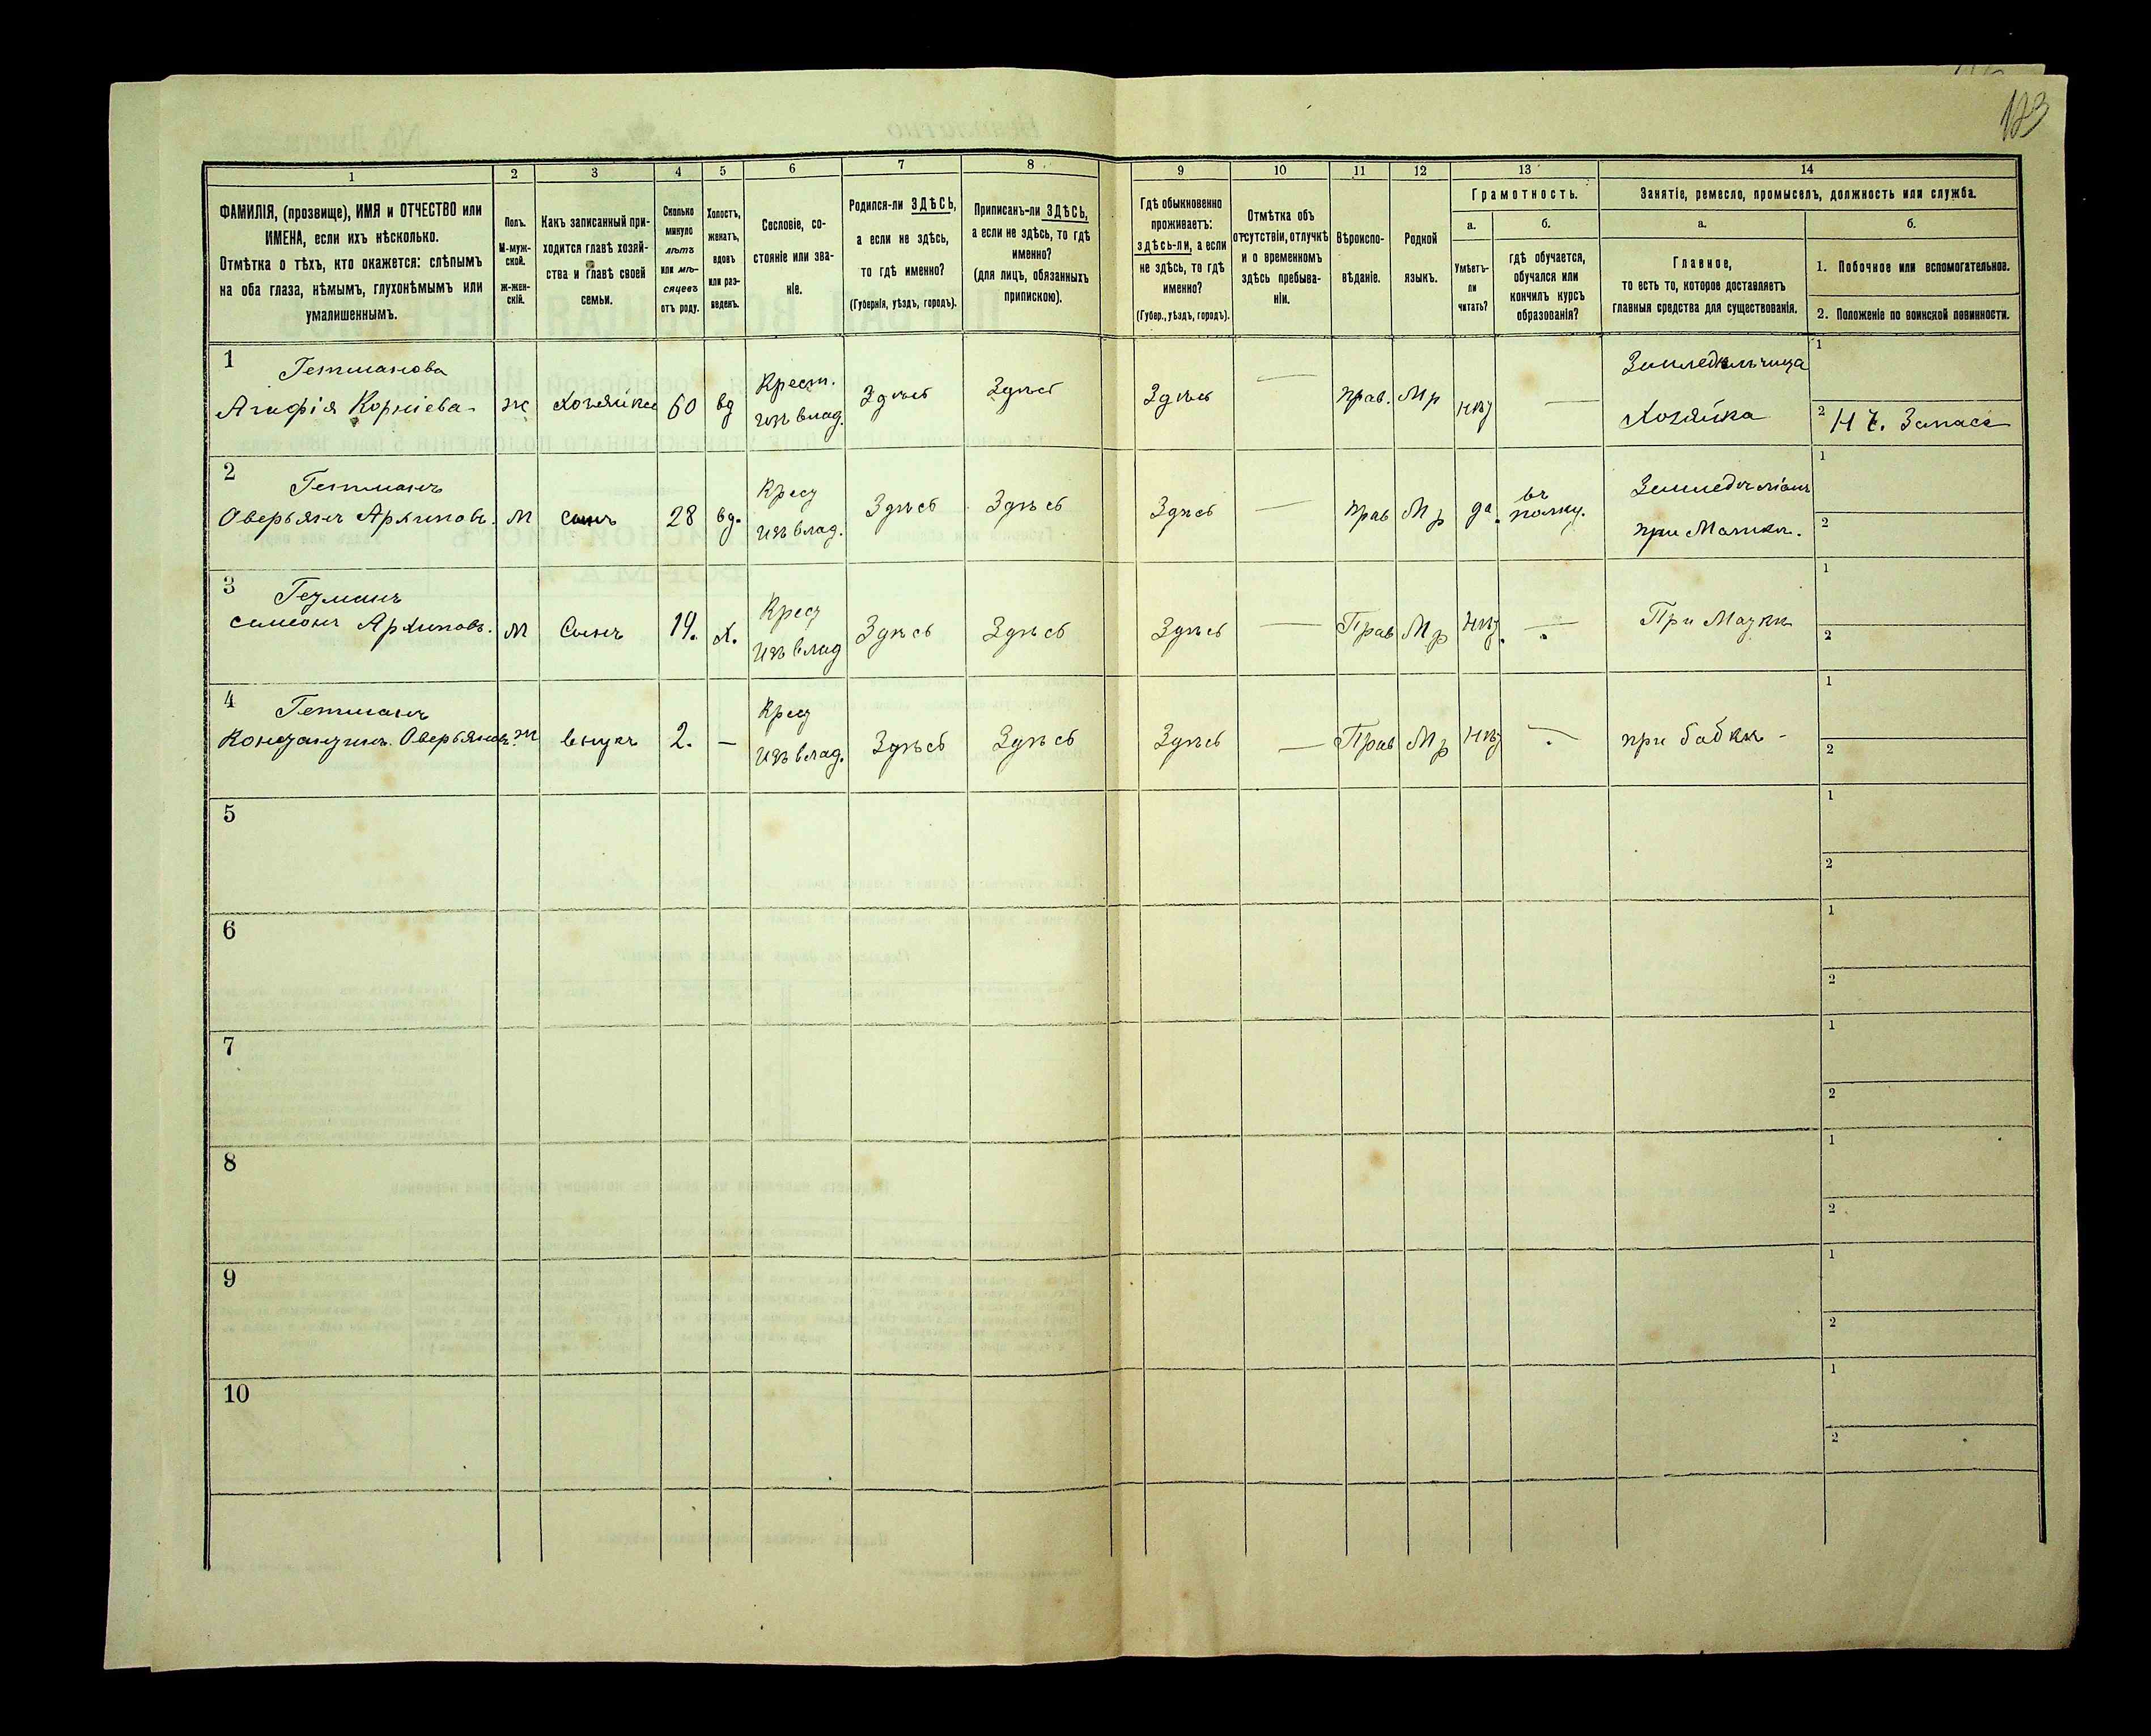 123
1 2 3 4 5 6 7 8 9 10 11 12 13 14
ФАМИЛІЯ, (прозвище), ИМЯ и ОТЧЕСТВО или
ИМЕНА, если ихъ нѣсколько.
Отмѣтка о тѣхъ, кто окажется: слѣпымъ
на оба глаза, нѣмымъ, глухонѣмымъ или
умалишеннымъ.
Полъ.
М-муж-
ской.
ж-жен-
скій.
Какъ записанный при-
ходится главѣ хозяй-
ства и главѣ своей
семьи.
Сколько
минуло
лѣтъ
или мѣ-
сяцевъ
отъ роду.
Холостъ,
женатъ,
вдовъ
или раз-
веденъ.
Сословіе, со-
стояніе или зва-
ніе.
Родился-ли ЗДѢСЬ,
а если не здѣсь,
то гдѣ именно?
(Губернія, уѣздъ, городъ).
Приписанъ-ли ЗДѢСЬ,
а если не здѣсь, то гдѣ
именно?
(для лицъ, обязанныхъ
припискою).
Гдѣ обыкновенно
проживаетъ:
здѣсь-ли, а если
не здѣсь, то гдѣ
именно?
(Губер., уѣздъ, городъ).
Отмѣтка объ
отсутствіи, отлучкѣ
и о временномъ
здѣсь пребыва-
ніи.
Вѣроиспо-
вѣданіе.
Родной
языкъ.
Грамотность.
а.
Умѣетъ-
ли
читать?
б.
гдѣ обучается,
обучался или
кончилъ курсъ
образованія?
Занятіе, ремесло, промыселъ, должность или служба.
а.
Главное,
то есть то, которое доставляетъ
главныя средства для существованія.
б.
1. Побочное или вспомогательное.
2. Положеніе по воинской повинности.
1 Гетманова Крест. Земледѣльчица 1
Агафія Корніева ж хозяйка 60 вд изъ влад. Здѣсь Здѣсь Здѣсь — прав. Мр нѣт — Хозяйка 2
2 Гетманъ Крест въ Земледѣліемъ 1
Оверьянъ Архиповъ. м сынъ 28 вд. изъ влад. Здѣсь Здѣсь Здѣсь — прав Мр да. полку. при Маткѣ. 2
3 Гетманъ Крест 1
Симеонъ Архиповъ. м Сынъ 19. х. изъ влад Здѣсь Здѣсь Здѣсь — Прав Мр Нѣт. — При Маткѣ 2
4 Гетманъ Крест 1
Константинъ Оверьяновъ. м внукъ 2. — изъ влад. Здѣсь Здѣсь Здѣсь — Прав Мр Нѣт — при бабкѣ - 2
5 1
2
6 1
2
7 1
2
8 1
2
9 1
2
10 1
2